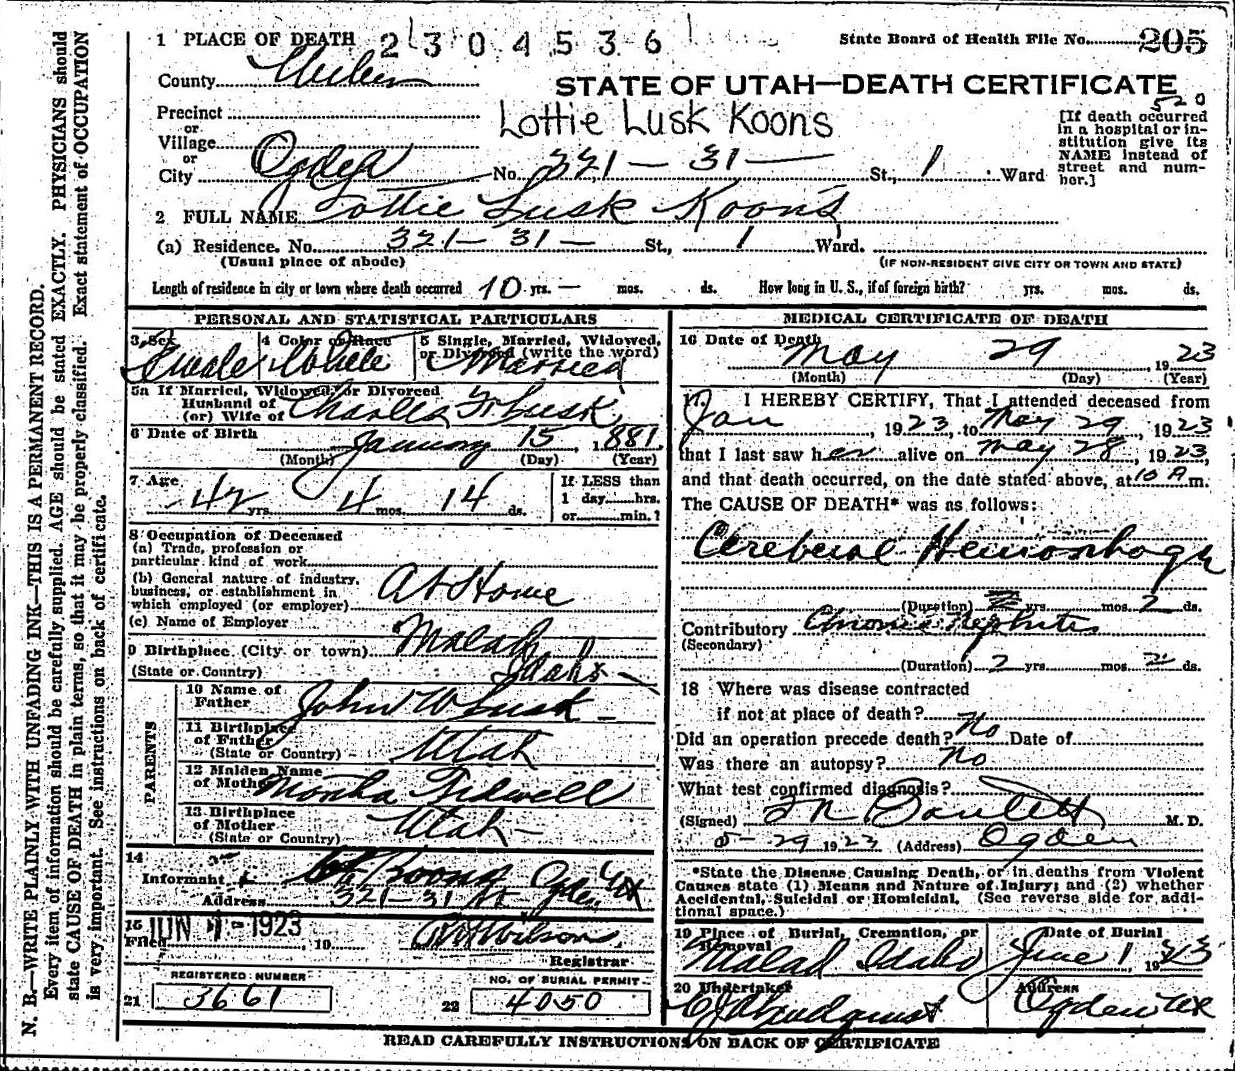 1 PLACE OF DEATH 2304536 State Board of Health File No. 205
County Weber
STATE OF UTAH—DEATH CERTIFICATE
520
Precinct
or
Village
or
City Ogden No. 321 — 31 — St., 1 Ward
Lottie Lusk Koons
[If death occurred
in a hospital or in-
stitution give its
NAME instead of
street and num-
ber.]
2 FULL NAME Lottie Lusk Koons
(a) Residence. No. 321 — 31 — St., 1 Ward.
(Usual place of abode) (IF NON-RESIDENT GIVE CITY OR TOWN AND STATE)
Length of residence in city or town where death occurred 10 yrs. — mos. ds. How long in U. S., if of foreign birth? yrs. mos. ds.
PERSONAL AND STATISTICAL PARTICULARS
3 Sex 4 Color or Race 5 Single, Married, Widowed,
or Divorced (write the word)
Female White Married
5a If Married, Widowed, or Divorced
Husband of
(or) Wife of Charles Lusk
6 Date of Birth January 15, 1881
(Month) (Day) (Year)
7 Age 42 yrs. 4 mos. 14 ds.
If LESS than
1 day......hrs.
or......min.?
8 Occupation of Deceased
(a) Trade, profession or
particular kind of work
(b) General nature of industry,
business, or establishment in
which employed (or employer) At Home
(c) Name of Employer
9 Birthplace (City or town) Malad
(State or Country) Idaho
PARENTS
10 Name of
Father John W Lusk
11 Birthplace
of Father
(State or Country) Utah
12 Maiden Name
of Mother Tidwell
13 Birthplace
of Mother
(State or Country) Utah
14
Informant Koons Ogden Ut
Address 321-31 St
15 JUN 1 - 1923
Filed , 19 Wilson
Registrar
REGISTERED NUMBER NO. OF BURIAL PERMIT
21 3661 22 4050
MEDICAL CERTIFICATE OF DEATH
16 Date of Death
May 29, 1923
(Month) (Day) (Year)
17 I HEREBY CERTIFY, That I attended deceased from
Jan, 1923, to May 29, 1923
that I last saw her alive on May 28, 1923,
and that death occurred, on the date stated above, at 10 A m.
The CAUSE OF DEATH* was as follows:
Cerebral Hemorrhage
(Duration) yrs. mos. 2 ds.
Contributory Chronic Nephritis
(Secondary)
(Duration) 2 yrs. mos. 2 ds.
18 Where was disease contracted
if not at place of death?
Did an operation precede death? No Date of
Was there an autopsy? No
What test confirmed diagnosis?
(Signed) Bartlett M. D.
5-29 1923 (Address) Ogden
*State the Disease Causing Death, or in deaths from Violent
Causes state (1) Means and Nature of Injury; and (2) whether
Accidental, Suicidal or Homicidal. (See reverse side for addi-
tional space.)
19 Place of Burial, Cremation, or
Removal Date of Burial
Malad Idaho June 1 1923
20 Undertaker Address
Lindquist Ogden Ut
READ CAREFULLY INSTRUCTIONS ON BACK OF CERTIFICATE
N. B.—WRITE PLAINLY WITH UNFADING INK—THIS IS A PERMANENT RECORD.
Every item of information should be carefully supplied. AGE should be stated EXACTLY. PHYSICIANS should
state CAUSE OF DEATH in plain terms, so that it may be properly classified. Exact statement of OCCUPATION
is very important. See instructions on back of certificate.